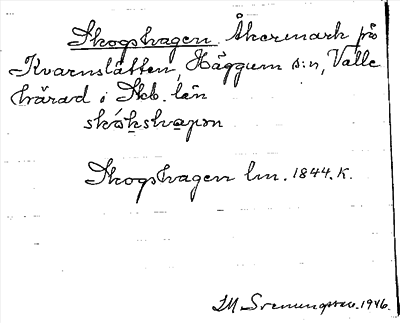 Skogshagen Åkermark på
Kvarnslätten, Häggum s:n, Valle
härad i Skb. län
skó̀kshapɔn
Skogshagen lm. 1844. K.
IM Svenungsson. 1946.